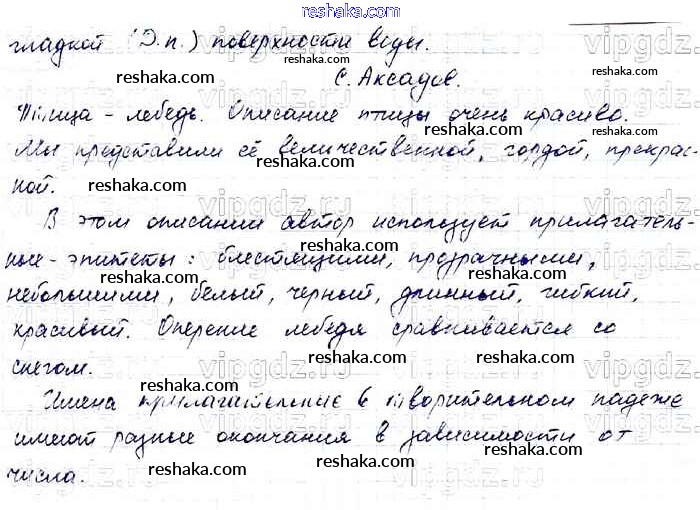 reshaka.com
гладкой (Д.п.) поверхности воды.
С. Аксадов.
Птица - лебедь. Описание птицы очень красиво.
Мы представили её величественной, гордой, прекрас-
ной.
В этом описании автор использует прилагатель-
ные - эпитеты: блестящими, прозрачными,
небольшими, белый, черный, длинный, гибкий,
красивый. Оперение лебедя сравнивается со
снегом.
Имена прилагательные в творительном падеже
имеют разные окончания в зависимости от
числа.
reshaka.com